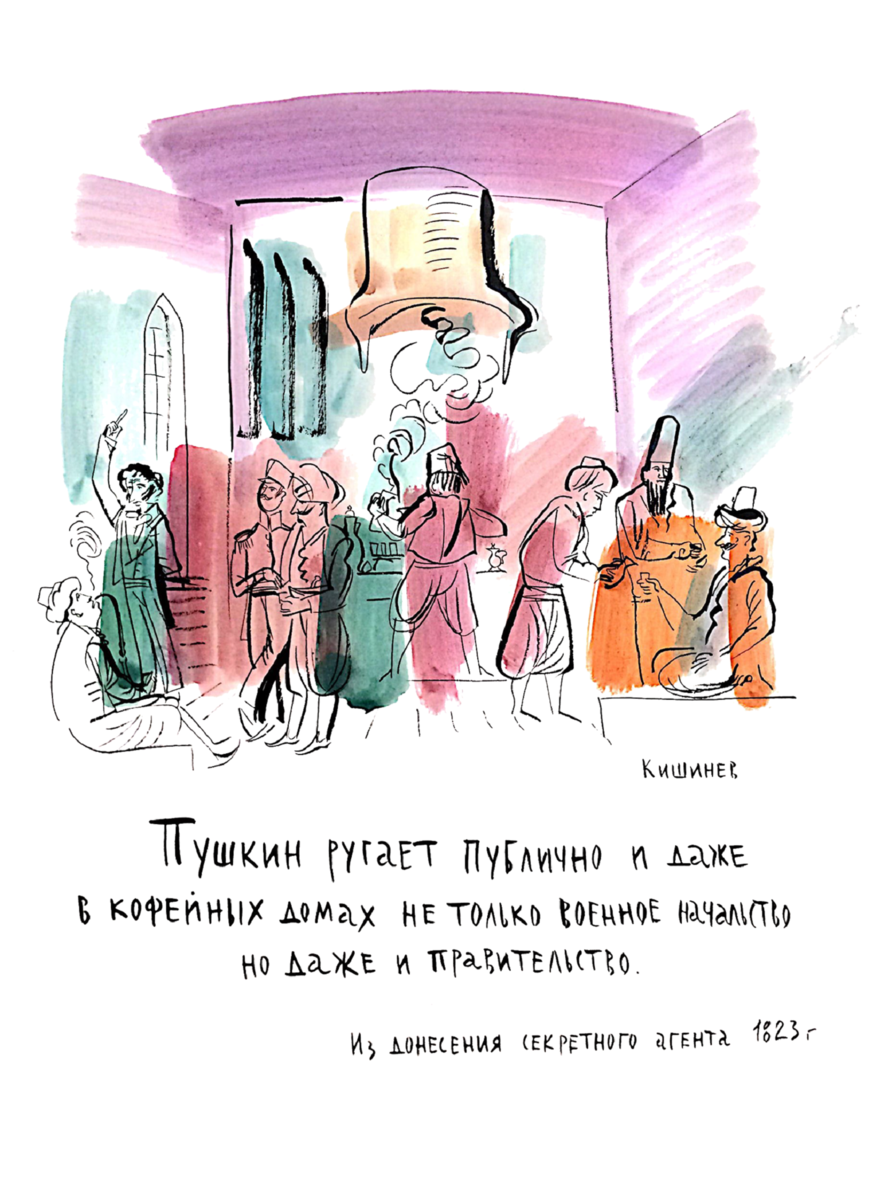 Кишинев
Пушкин ругает публично и даже
в кофейных домах не только военное начальство
но даже и правительство.
Из донесения секретного агента 1823 г